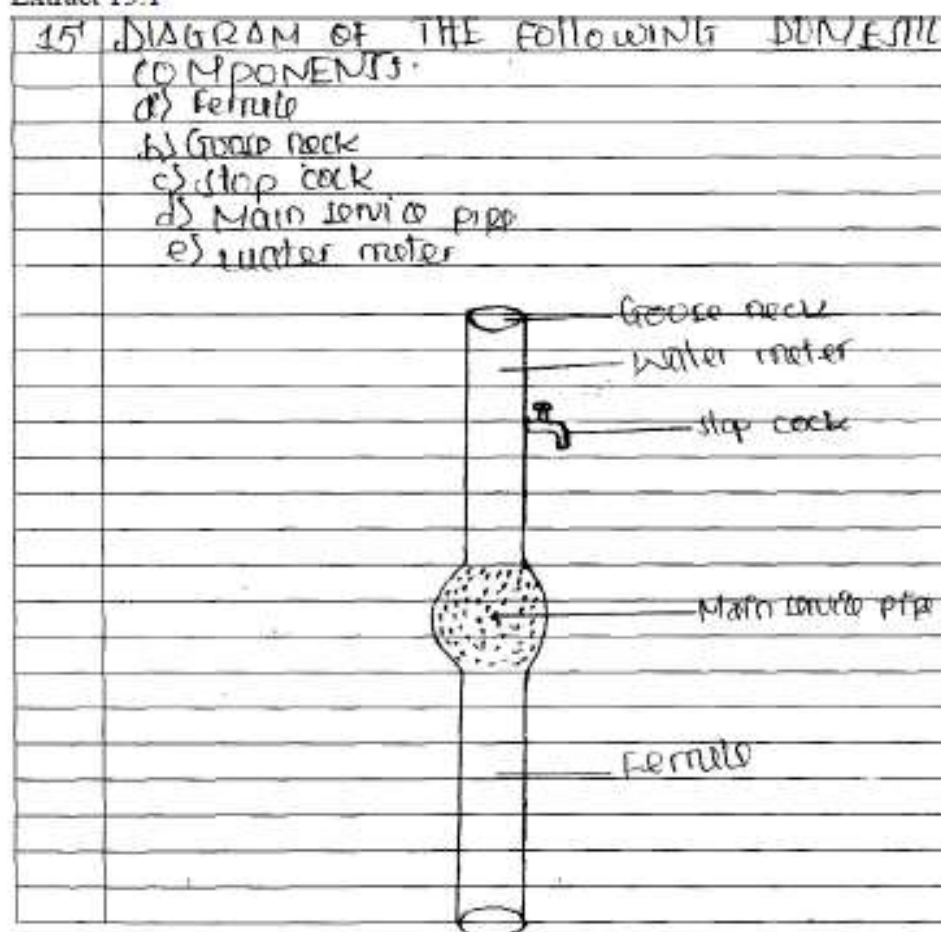 15 DIAGRAM OF THE FOllOWING DOMESTIC
COMPONENTS.
a) Ferrule
b) Goose neck
c) stop cock
d) Main service pipe
e) water meter
Goose neck
Water meter
stop cock
Main service pipe
Ferrule